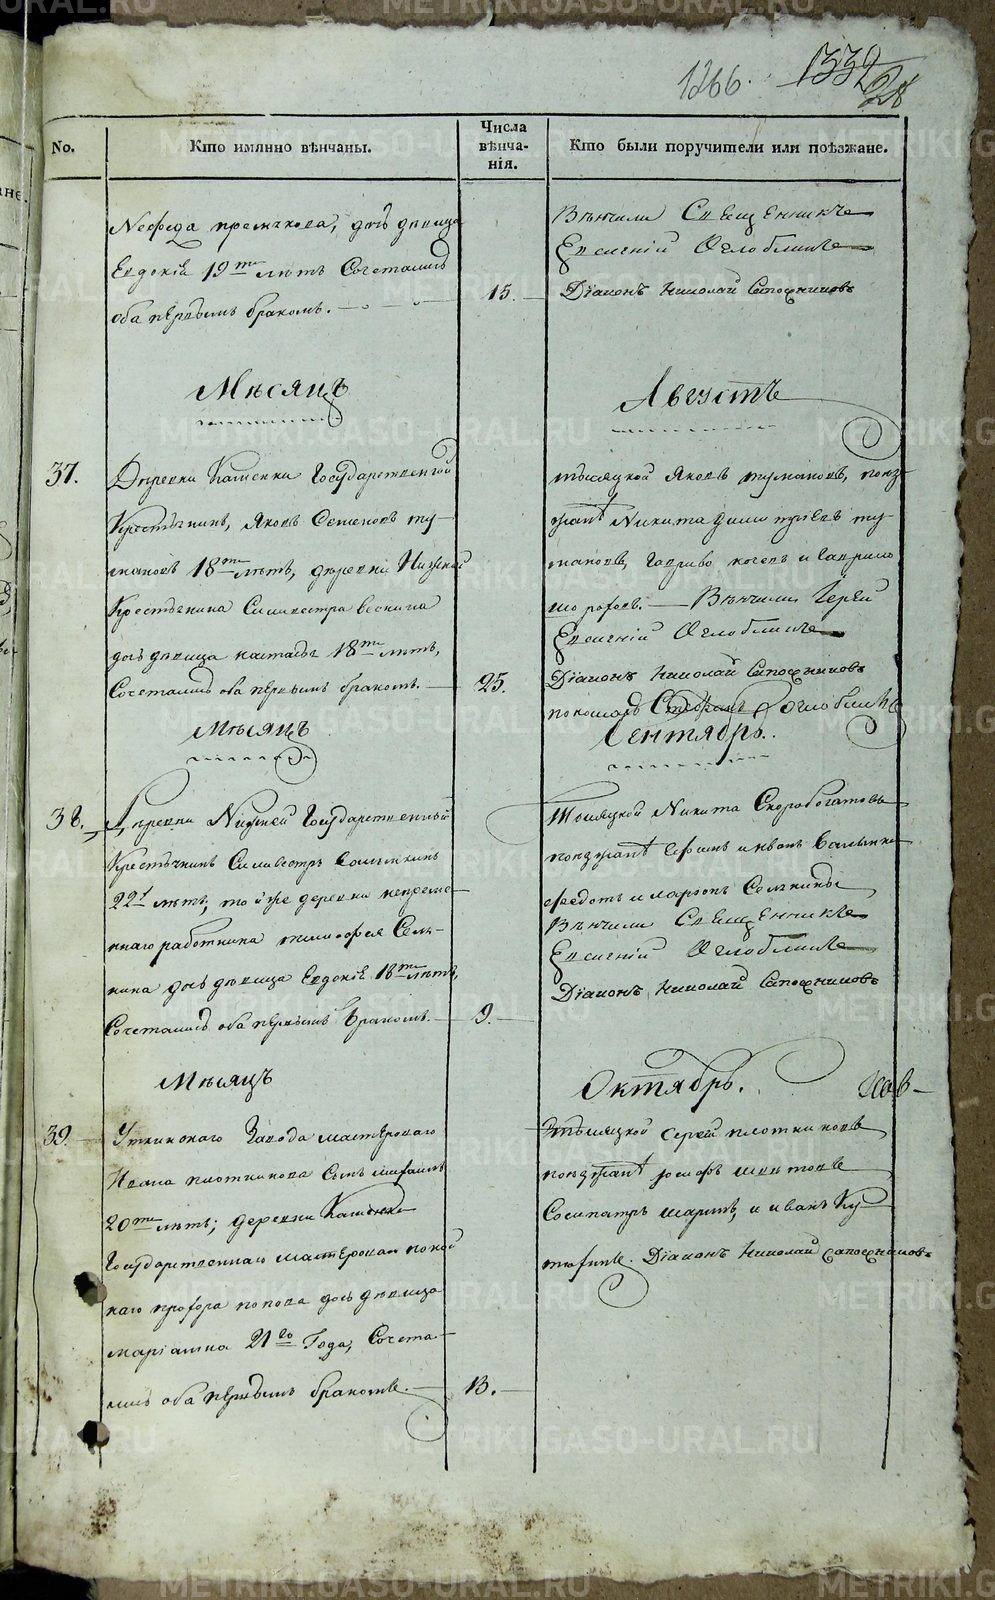 1266. 1332
28
No.
Кто имянно вѣнчаны.
Числа вѣнча-
нія.
Кто были поручители или поѣзжане.
дочь дѣвица
Евдокія 19ти лѣтъ Сочетались
оба первымъ бракомъ.
15.
Вѣнчили Священникъ
Евгеній Оглоблинъ
Діаконъ Николай Сапожниковъ
Мѣсяцъ
Августъ
37.
Деревни Каменки Государственной
Крестьянинъ, Яковъ Семеновъ ту-
мановъ 18ти лѣтъ, деревни Нижней
Крестьянина Силивестра
дочь дѣвица 18ти лѣтъ,
Сочетались оба первымъ бракомъ.
25.
тысяцкой Яковъ тумановъ, поез-
жанѣ Никита ту-
мановъ, и Гаврило
Вѣнчили Іерей
Евгеній Оглоблинъ
Діаконъ Николай Сапожниковъ
пономарь Стефанъ Оглоблинъ
Мѣсяцъ
Сентябрь.
38.
Деревни Нижней Государственный
Крестьянинъ Силивестръ
22х лѣтъ, той же деревни непреме-
ннаго работника тимофея Сель-
кина дочь дѣвица Евдокія 18ти лѣтъ,
Сочетались оба первымъ бракомъ.
9.
Тысяцкой Никита Скоробогатовъ
поезжанѣ Ефимъ и иванъ
федотъ и Селькины
Вѣнчили Священникъ
Евгеній Оглоблинъ
Діаконъ Николай Сапожниковъ
Мѣсяцъ
Октябрь.
39.
Уткинскаго Завода мастероваго
Ивана плотникова Сынъ михаилъ
20ти лѣтъ; деревни Каменки
Государственнаго мастероваго покой
наго попова дочь дѣвица
маріамна 21го Года, Сочета-
лись оба первымъ бракомъ.
13.
тысяцкой Сергей плотниковъ
поезжанѣ
Сосипатръ и иванъ Ку-
Діаконъ Николай Сапожниковъ